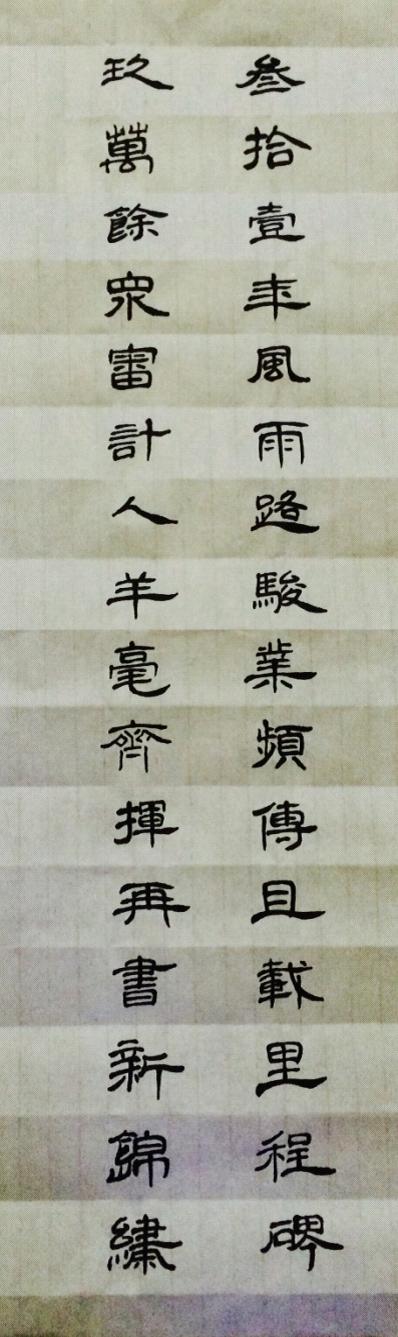 叁拾壹年風雨路駿業頻傳且載里程碑
玖萬餘眾審計人羊毫齊揮再書新錦繡